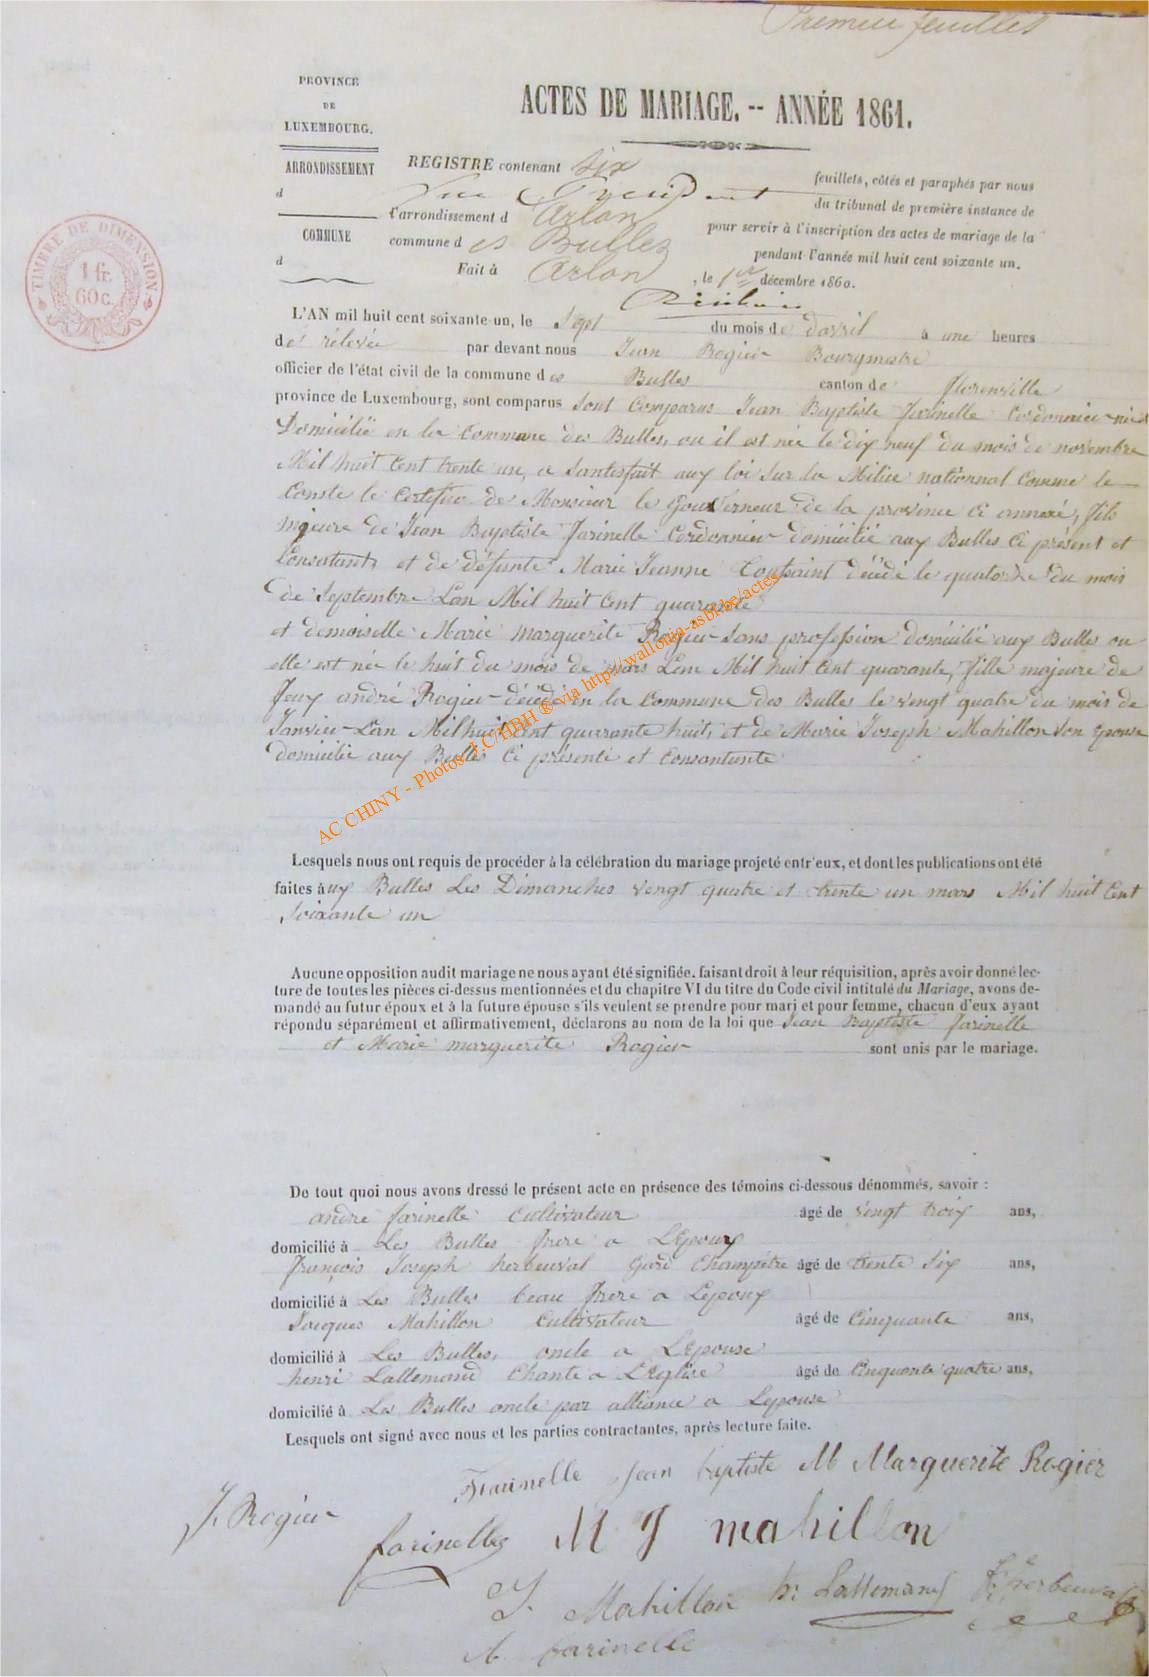 Premier feuillet
PROVINCE
DE
LUXEMBOURG.
ARRONDISSEMENT
d
COMMUNE
d
TIMBRE DE DIMENSION
1 fr.
60 c.
ACTES DE MARIAGE. -- ANNÉE 1861.
REGISTRE contenant six feuillets, côtés et paraphés par nous
Vice Président du tribunal de première instance de
l'arrondissement d Arlon pour servir à l'inscription des actes de mariage de la
commune d es Bulles pendant l'année mil huit cent soixante un.
Fait à Arlon, le 1er décembre 1860.
L'AN mil huit cent soixante-un, le Sept du mois de davril à une heures
de rélevée par devant nous Jean Rogier Bourgmestre
officier de l'état civil de la commune des Bulles canton de florenville
province de Luxembourg, sont comparus Sont Comparus Jean Baptiste farinelle Cordonnier
Domicilié en la Commune des Bulles, ou il est née le dix neuf du mois de novembre
Mil huit Cent trente un, a Santesfait aux loi Sur la Milice nationnal Comme le
Conste le Certifica de Monsieur le Gouverneur de la province Ci annexé, fils
majeure de Jean Baptiste farinelle Cordoanier domicilié aux Bulles Ci présent et
Consatant et de défunte Marie Jeanne Toutsaint décédé le quatorze du mois
de Septembre L'an Mil huit Cent quarante
et demoiselle Marie Marguerite Rogier Sans profession domicilié aux Bulles ou
elle est née le huit du mois de mars L'an Mil huit Cent quarante, fille majeure de
feux andré Rogier décédé en la Commune des Bulles le vengt quatre du mois de
Janvier L'an Mil huit Cent quarante huit, et de Marie Joseph Mahillon Son Epouse
domicilié aux Bulles Ci présente et Consantente
AC CHINY - Photos J.C/HBH ® via http://wallonia-asbl.be/actes
Lesquels nous ont requis de procéder à la célébration du mariage projeté entr'eux, et dont les publications ont été
faites aux Bulles Les Dimanches vengt quatre et trente un mars Mil huit Cent
Soixante un
Aucune opposition audit mariage ne nous ayant été signifiée, faisant droit à leur réquisition, après avoir donné lec-
ture de toutes les pièces ci-dessus mentionnées et du chapitre VI du titre du Code civil intitulé du Mariage, avons de-
mandé au futur époux et à la future épouse s'ils veulent se prendre pour mari et pour femme, chacun d'eux ayant
répondu séparément et affirmativement, déclarons au nom de la loi que Jean Baptiste farinelle
et Marie marguerite Rogier sont unis par le mariage.
De tout quoi nous avons dressé le présent acte en présence des témoins ci-dessous dénommés, savoir :
andré farinelle Cultivateur âgé de vengt troix ans,
domicilié à Les Bulles frere a L'Epoux
françois Joseph herbeuval Gard Champétre âgé de trente Six ans,
domicilié à Les Bulles beau frere a Lepoux
Jacques Mahillon Cultivateur âgé de Cinquante ans,
domicilié à Les Bulles, oncle a L'Epouse
henri Lallemand Chante a L'Eglise âgé de Cinquante quatre ans,
domicilié à Les Bulles oncle par alliance a Lepouse
Lesquels ont signé avec nous et les parties contractantes, après lecture faite.
Farinelle Jean baptiste M Marguerite Rogier
J. Rogier
farinelle M J mahillon
J. Mahillon h: Lallemand f: herbeuval
A. farinelle